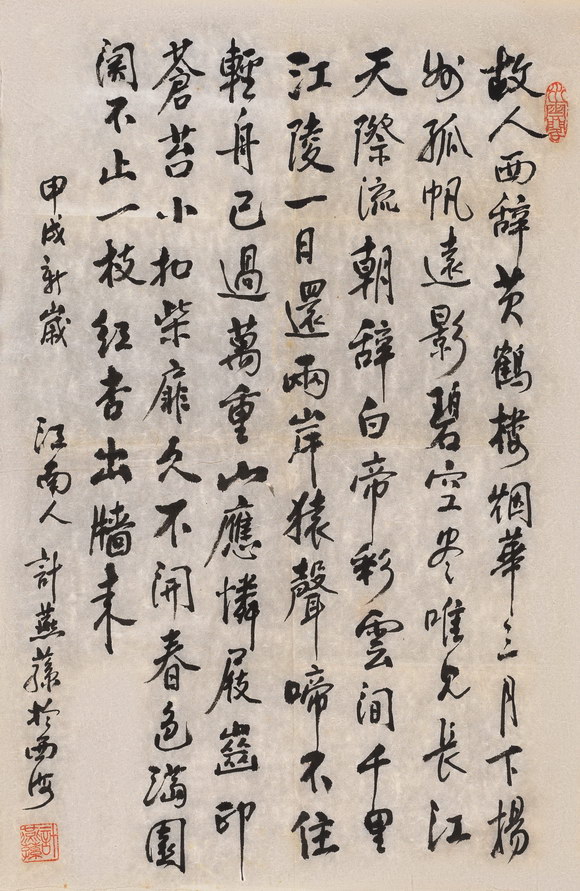 故人西辞黄鶴楼烟華三月下揚
州孤帆遠影碧空尽唯见長江
天際流朝辞白帝彩雲间千里
江陵一日還兩岸猿聲啼不住
輕舟已過萬重山應憐屐齒印
蒼苔小扣柴扉久不開春色滿園
関不止一枝红杏出牆来
甲戌新歲 江南人計燕蓀於西海